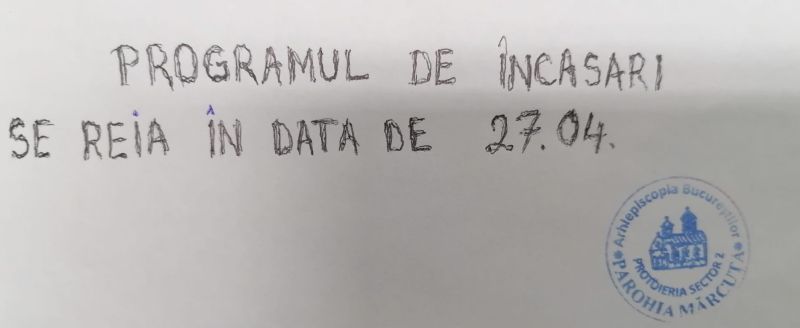 PROGRAMUL DE ÎNCASARI
SE REIA ÎN DATA DE 27.04.
Arhiepiscopia Bucureștilor
PROTOIERIA SECTOR 2
PAROHIA MĂRCUȚA